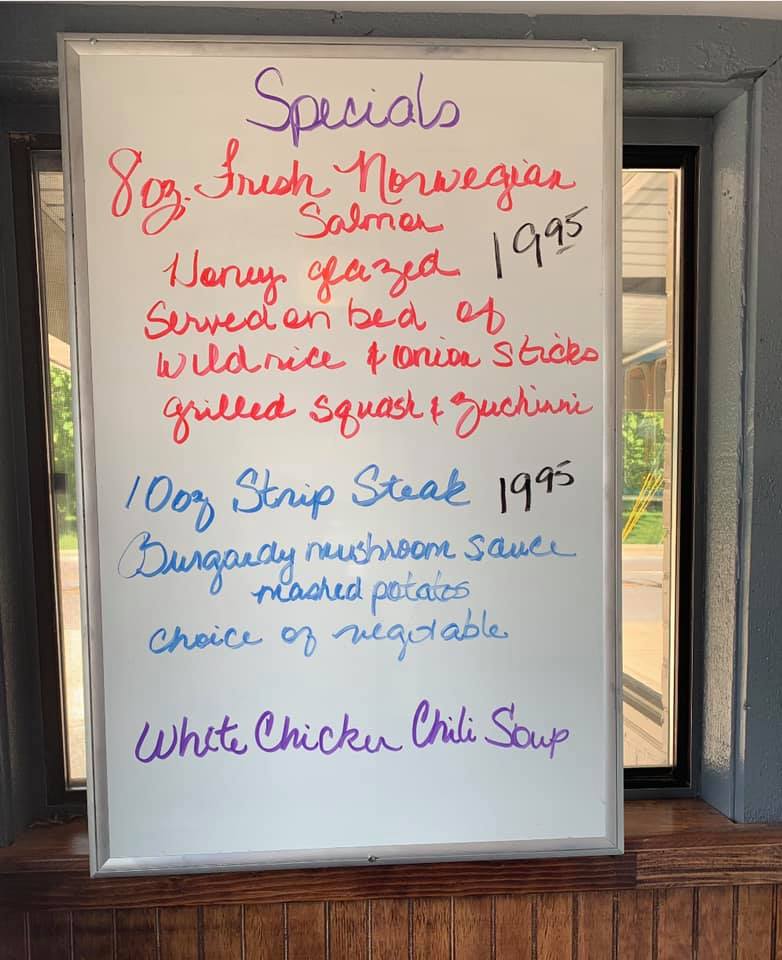 Specials
8oz. Fresh Norwegian
Salmon
19 95
Honey glazed
Served on bed of
wild rice & onion sticks
grilled squash & zuchinni
10oz Strip Steak 19 95
Burgandy mushroom sauce
mashed potatos
choice of vegetable
White Chicken Chili Soup